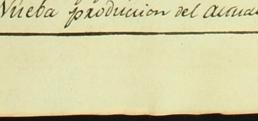 Nueba produccion del